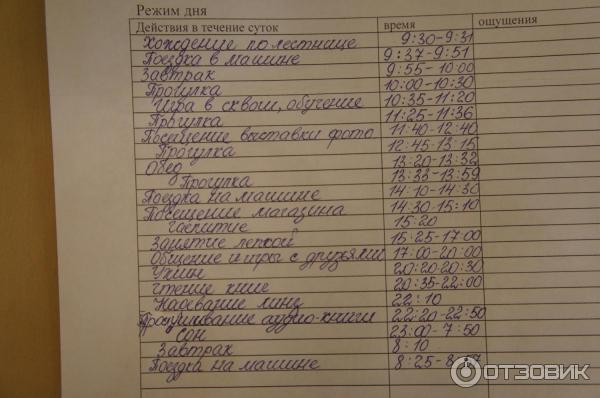 Режим дня
Действия в течение суток время ощущения
Хождение по лестнице 9:30-9:31
Поездка в машине 9:37-9:51
Завтрак 9:55-10:00
Прогулка 10:00-10:30
Игра в сквош, обучение 10:35-11:20
Прогулка 11:25-11:36
Посещение выставки фото 11:40-12:40
Прогулка 12:45-13:15
Обед 13:20-13:32
Прогулка 13:33-13:59
Поездка на машине 14:10-14:30
Посещение магазина 14:30-15:10
Чаепитие 15:20
Занятие лепкой 15:25-17:00
Общение и игры с друзьями 17:00-20:00
Ужин 20:20-20:30
Чтение книг 20:35-22:00
Надевание линз 22:10
Прослушивание аудио-книги 22:20-22:50
Сон 23:00-7:50
Завтрак 8:10
Поездка на машине 8:25-
ОТЗОВИК